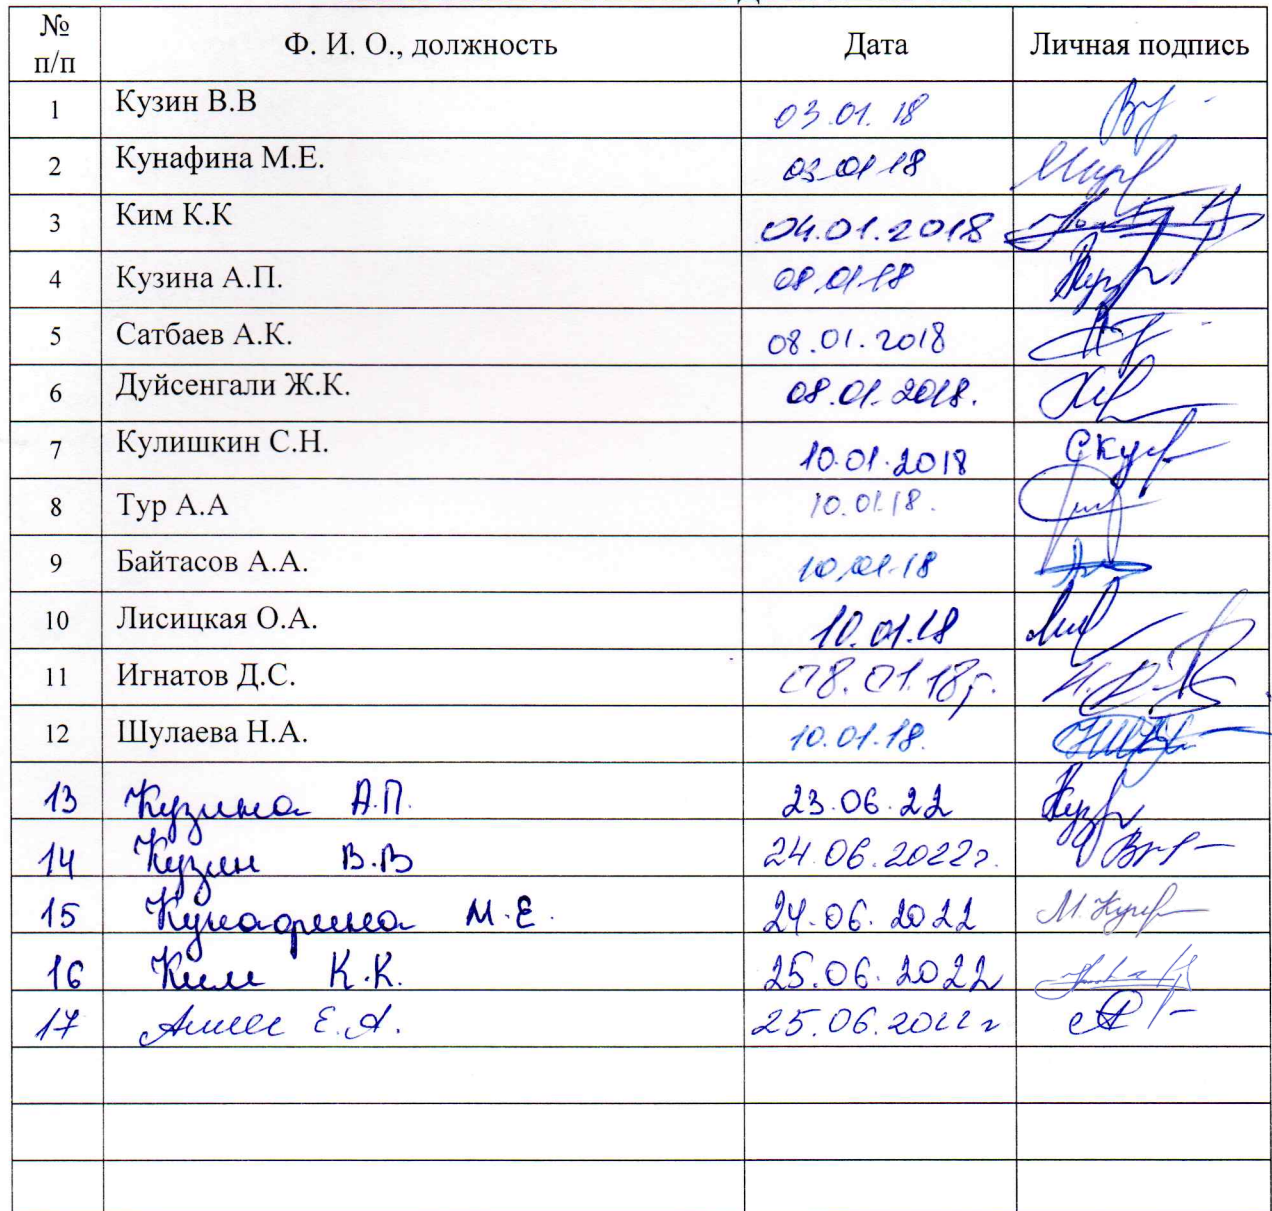 № п/п Ф. И. О., должность Дата Личная подпись
1 Кузин В.В 03.01.18
2 Кунафина М.Е. 03.01.18
3 Ким К.К 04.01.2018
4 Кузина А.П. 08.01.18
5 Сатбаев А.К. 08.01.2018
6 Дуйсенгали Ж.К. 08.01.2018.
7 Кулишкин С.Н. 10.01.2018
8 Тур А.А 10.01.18.
9 Байтасов А.А. 10.01.18
10 Лисицкая О.А. 10.01.18
11 Игнатов Д.С. 08.01.18г.
12 Шулаева Н.А. 10.01.18.
13 Кузина А.П. 23.06.22
14 Кузин В.В 24.06.2022г.
15 Кунафина М.Е. 24.06.2022
16 Ким К.К. 25.06.2022
17 Е.А. 25.06.2022г